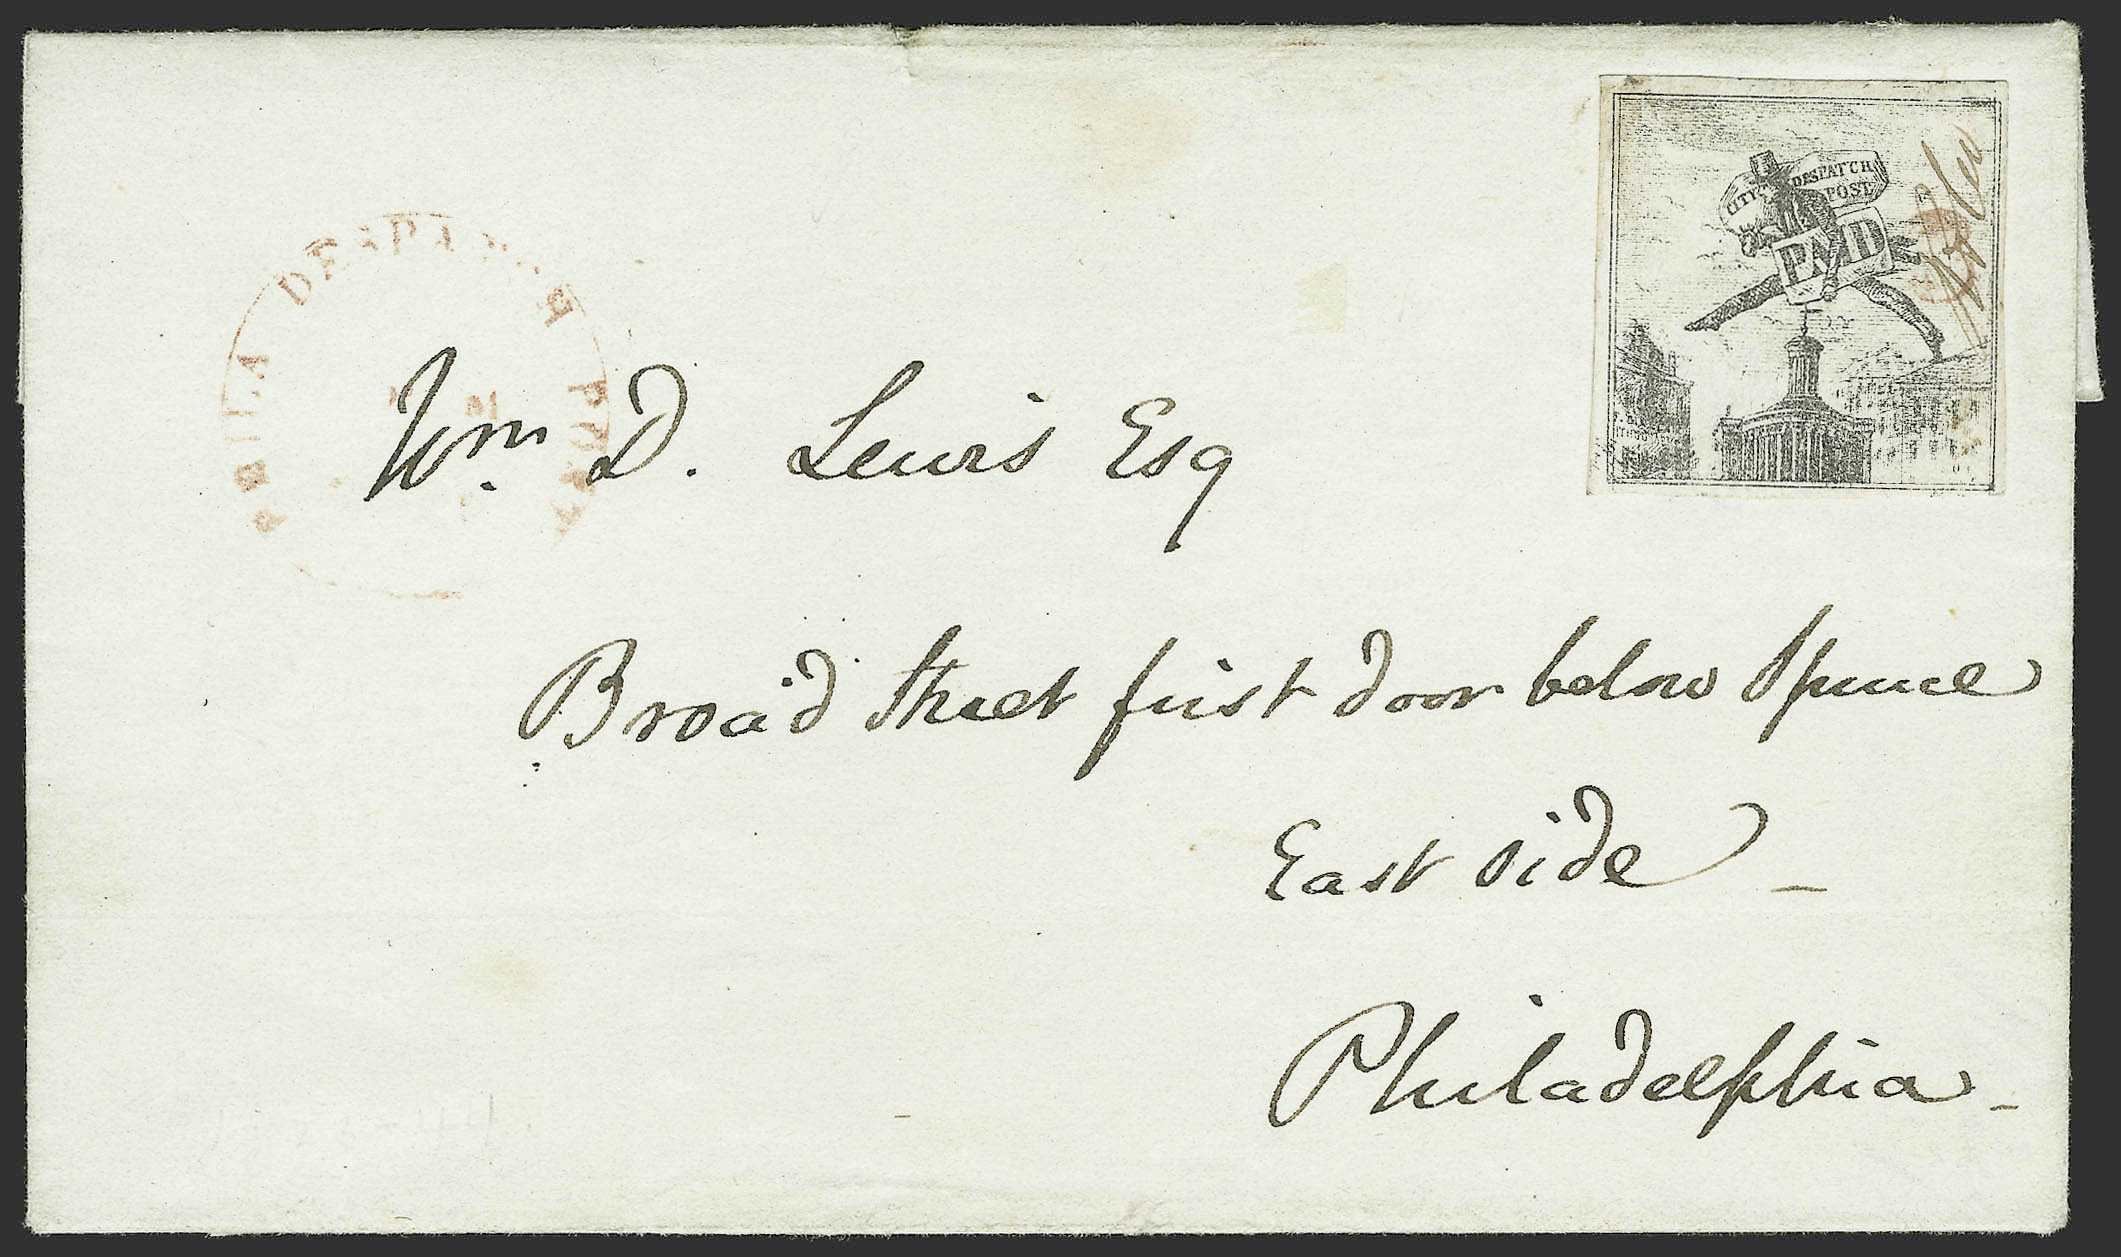 PHILA DESPATCH POST
CITY DESPATCH
POST
PMD
Wm. D. Lewis Esq
Broad Street first door below Spruce
East side
Philadelphia